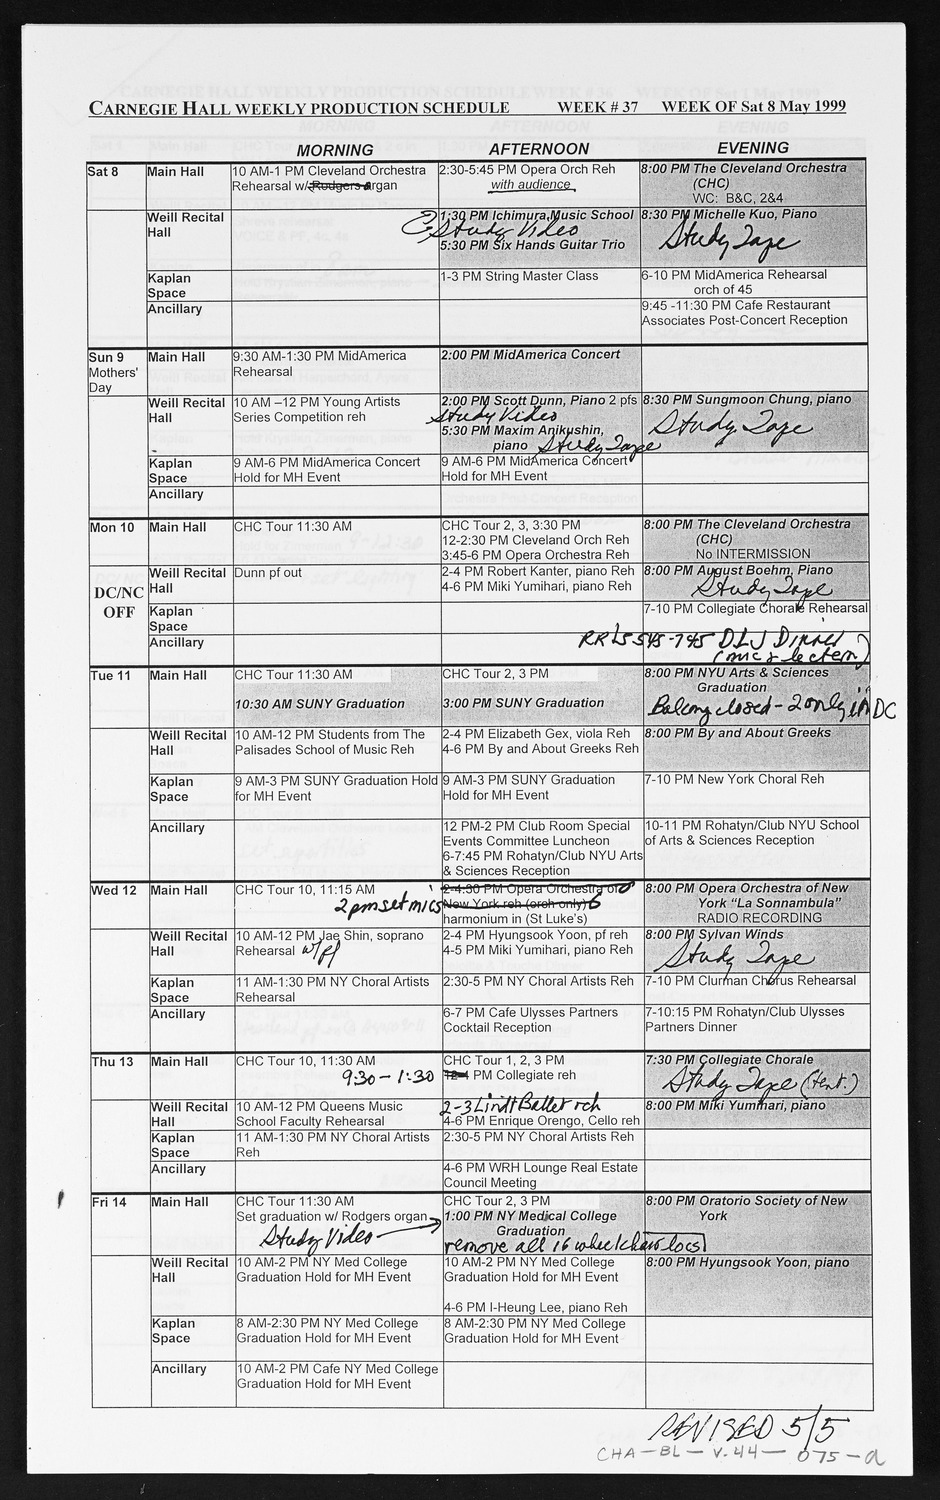 CARNEGIE HALL WEEKLY PRODUCTION SCHEDULE WEEK # 37 WEEK OF Sat 8 May 1999
MORNING AFTERNOON EVENING
Sat 8
Main Hall
10 AM-1 PM Cleveland Orchestra
Rehearsal w/ Rodgers organ
2:30-5:45 PM Opera Orch Reh
with audience
8:00 PM The Cleveland Orchestra
(CHC)
WC: B&C, 2&4
Weill Recital
Hall
1:30 PM Ichimura Music School
Study Video
5:30 PM Six Hands Guitar Trio
8:30 PM Michelle Kuo, Piano
Study Tape
Kaplan
Space
1-3 PM String Master Class
6-10 PM MidAmerica Rehearsal
orch of 45
Ancillary
9:45 -11:30 PM Cafe Restaurant
Associates Post-Concert Reception
Sun 9
Mothers'
Day
Main Hall
9:30 AM-1:30 PM MidAmerica
Rehearsal
2:00 PM MidAmerica Concert
Weill Recital
Hall
10 AM –12 PM Young Artists
Series Competition reh
2:00 PM Scott Dunn, Piano 2 pfs
Study Video
5:30 PM Maxim Anikushin,
piano Study Tape
8:30 PM Sungmoon Chung, piano
Study Tape
Kaplan
Space
9 AM-6 PM MidAmerica Concert
Hold for MH Event
9 AM-6 PM MidAmerica Concert
Hold for MH Event
Ancillary
Mon 10
DC/NC
OFF
Main Hall
CHC Tour 11:30 AM
CHC Tour 2, 3, 3:30 PM
12-2:30 PM Cleveland Orch Reh
3:45-6 PM Opera Orchestra Reh
8:00 PM The Cleveland Orchestra
(CHC)
No INTERMISSION
Weill Recital
Hall
Dunn pf out
2-4 PM Robert Kanter, piano Reh
4-6 PM Miki Yumihari, piano Reh
8:00 PM August Boehm, Piano
Study Tape
Kaplan
Space
7-10 PM Collegiate Chorale Rehearsal
Ancillary
RR's 545-745 DLJ Dinner
(mic & lectern)
Tue 11
Main Hall
CHC Tour 11:30 AM
10:30 AM SUNY Graduation
CHC Tour 2, 3 PM
3:00 PM SUNY Graduation
8:00 PM NYU Arts & Sciences
Graduation
Balcony closed - 2 only in DC
Weill Recital
Hall
10 AM-12 PM Students from The
Palisades School of Music Reh
2-4 PM Elizabeth Gex, viola Reh
4-6 PM By and About Greeks Reh
8:00 PM By and About Greeks
Kaplan
Space
9 AM-3 PM SUNY Graduation Hold
for MH Event
9 AM-3 PM SUNY Graduation
Hold for MH Event
7-10 PM New York Choral Reh
Ancillary
12 PM-2 PM Club Room Special
Events Committee Luncheon
6-7:45 PM Rohatyn/Club NYU Arts
& Sciences Reception
10-11 PM Rohatyn/Club NYU School
of Arts & Sciences Reception
Wed 12
Main Hall
CHC Tour 10, 11:15 AM
2 pm set mics
2-4:30 PM Opera Orchestra of
New York reh (orch only)
harmonium in (St Luke's)
8:00 PM Opera Orchestra of New
York "La Sonnambula"
RADIO RECORDING
Weill Recital
Hall
10 AM-12 PM Jae Shin, soprano
Rehearsal w/pf
2-4 PM Hyungsook Yoon, pf reh
4-5 PM Miki Yumihari, piano Reh
8:00 PM Sylvan Winds
Study Tape
Kaplan
Space
11 AM-1:30 PM NY Choral Artists
Rehearsal
2:30-5 PM NY Choral Artists Reh
7-10 PM Clurman Chorus Rehearsal
Ancillary
6-7 PM Cafe Ulysses Partners
Cocktail Reception
7-10:15 PM Rohatyn/Club Ulysses
Partners Dinner
Thu 13
Main Hall
CHC Tour 10, 11:30 AM
9:30 - 1:30
CHC Tour 1, 2, 3 PM
12-4 PM Collegiate reh
7:30 PM Collegiate Chorale
Study Tape (tent.)
Weill Recital
Hall
10 AM-12 PM Queens Music
School Faculty Rehearsal
2-3 Lindt Ballet reh
4-6 PM Enrique Orengo, Cello reh
8:00 PM Miki Yumihari, piano
Kaplan
Space
11 AM-1:30 PM NY Choral Artists
Reh
2:30-5 PM NY Choral Artists Reh
Ancillary
4-6 PM WRH Lounge Real Estate
Council Meeting
Fri 14
Main Hall
CHC Tour 11:30 AM
Set graduation w/ Rodgers organ
Study Video
CHC Tour 2, 3 PM
1:00 PM NY Medical College
Graduation
remove all 16 wheelchair locs
8:00 PM Oratorio Society of New
York
Weill Recital
Hall
10 AM-2 PM NY Med College
Graduation Hold for MH Event
10 AM-2 PM NY Med College
Graduation Hold for MH Event
4-6 PM I-Heung Lee, piano Reh
8:00 PM Hyungsook Yoon, piano
Kaplan
Space
8 AM-2:30 PM NY Med College
Graduation Hold for MH Event
8 AM-2:30 PM NY Med College
Graduation Hold for MH Event
Ancillary
10 AM-2 PM Cafe NY Med College
Graduation Hold for MH Event
REVISED 5/5
CHA-BL-V.44-075-a